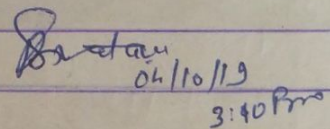 04/10/19
3:40 Pm